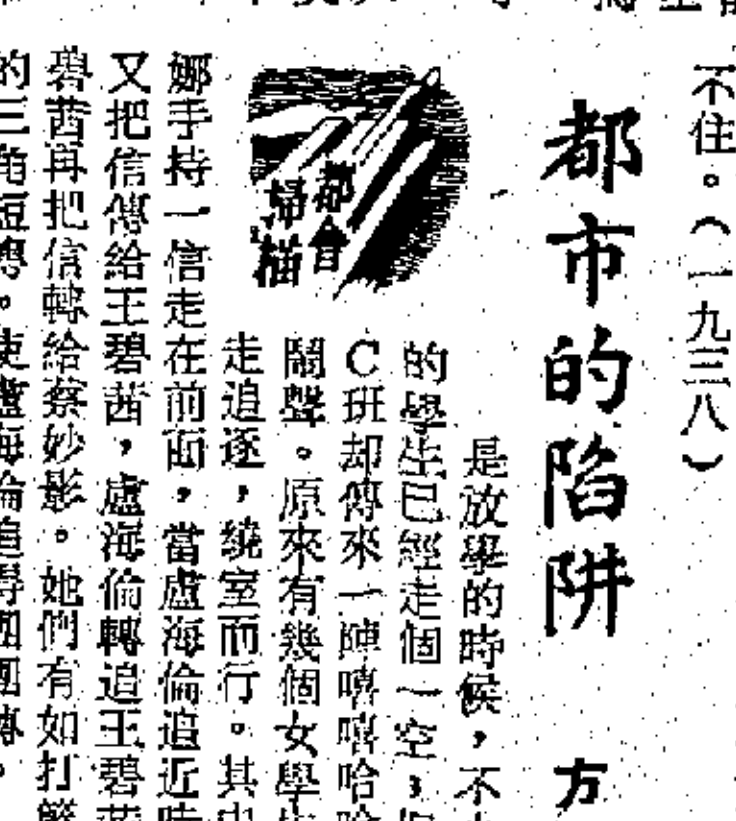 不住。(一九三八)
都市的陷阱 方
都會
掃描
是放學的時候，不
的學生已經走個一空，
C班却傳來一陣嘻嘻哈哈
鬧聲。原來有幾個女學生
走追逐，繞室而行。其中
娜手持一信走在前面，當盧海倫追近時
又把信傳給王碧茜，盧海倫轉追王碧茜
碧茜再把信轉給蔡妙影。她們有如打籃
的三角短傳。使盧海倫追得團團轉。